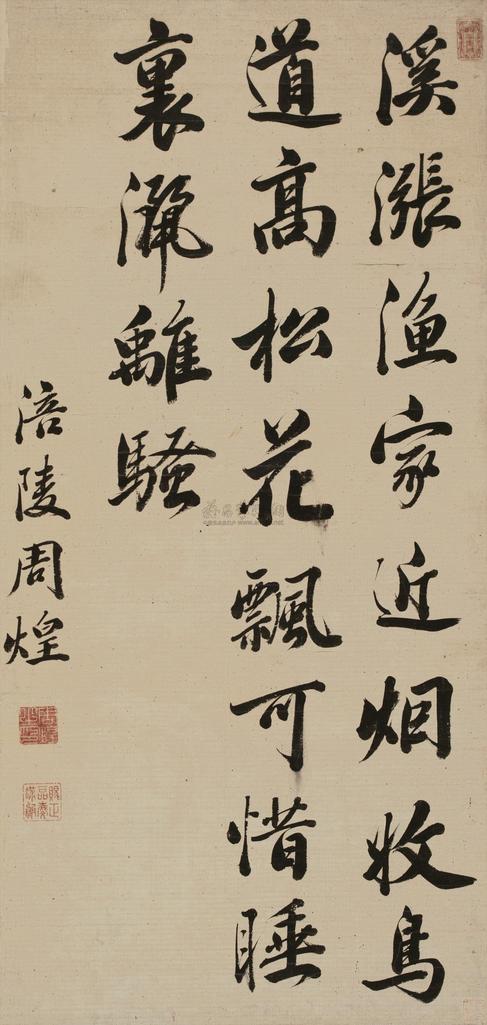 溪漲漁家近烟收鳥
道髙松花飄可惜睡
裏灑離騷
涪陵周煌